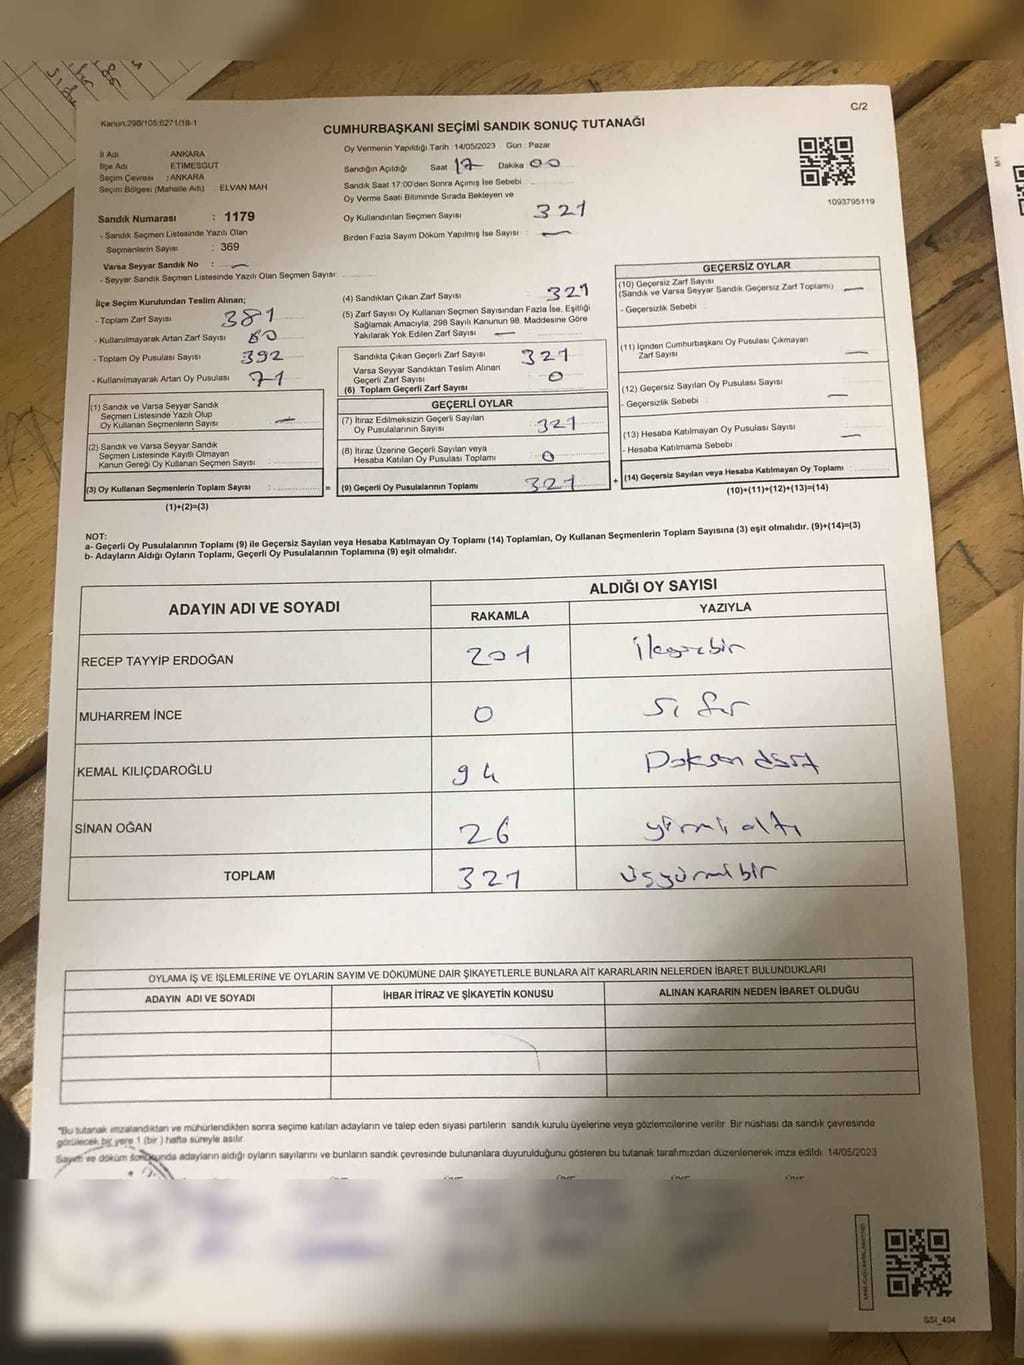 C/2
Kanun;298/105;6271/18-1
CUMHURBAŞKANI SEÇİMİ SANDIK SONUÇ TUTANAĞI
İl Adı ANKARA
İlçe Adı ETİMESGUT
Seçim Çevresi : ANKARA
Seçim Bölgesi (Mahalle Adı) ELVAN MAH
Sandık Numarası : 1179
- Sandık Seçmen Listesinde Yazılı Olan
Seçmenlerin Sayısı : 369
Varsa Seyyar Sandık No :
- Seyyar Sandık Seçmen Listesinde Yazılı Olan Seçmen Sayısı
Oy Vermenin Yapıldığı Tarih : 14/05/2023 Gün : Pazar
Sandığın Açıldığı Saat 17 Dakika 00
Sandık Saat 17:00'den Sonra Açımış İse Sebebi
Oy Verme Saati Bitiminde Sırada Bekleyen ve
Oy Kullandırılan Seçmen Sayısı 321
Birden Fazla Sayım Döküm Yapılmış İse Sayısı : —
1093795119
İlçe Seçim Kurulundan Teslim Alınan;
- Toplam Zarf Sayısı 381
- Kullanılmayarak Artan Zarf Sayısı 60
- Toplam Oy Pusulası Sayısı 392
- Kullanılmayarak Artan Oy Pusulası 71
(1) Sandık ve Varsa Seyyar Sandık
Seçmen Listesinde Yazılı Olup
Oy Kullanan Seçmenlerin Sayısı —
(2) Sandık ve Varsa Seyyar Sandık
Seçmen Listesinde Kayıtlı Olmayan
Kanun Gereği Oy Kullanan Seçmen Sayısı
(3) Oy Kullanan Seçmenlerin Toplam Sayısı : =
(1)+(2)=(3)
(4) Sandıktan Çıkan Zarf Sayısı 321
(5) Zarf Sayısı Oy Kullanan Seçmen Sayısından Fazla İse, Eşitliği
Sağlamak Amacıyla; 298 Sayılı Kanunun 98. Maddesine Göre
Yakılarak Yok Edilen Zarf Sayısı : —
Sandıkta Çıkan Geçerli Zarf Sayısı 321
Varsa Seyyar Sandıktan Teslim Alınan
Geçerli Zarf Sayısı 0
(6) Toplam Geçerli Zarf Sayısı
GEÇERLİ OYLAR
(7) İtiraz Edilmeksizin Geçerli Sayılan
Oy Pusulalarının Sayısı : 321
(8) İtiraz Üzerine Geçerli Sayılan veya
Hesaba Katılan Oy Pusulası Toplamı : 0
(9) Geçerli Oy Pusulalarının Toplamı 321 +
GEÇERSİZ OYLAR
(10) Geçersiz Zarf Sayısı
(Sandık ve Varsa Seyyar Sandık Geçersiz Zarf Toplamı) —
- Geçersizlik Sebebi :
(11) İçinden Cumhurbaşkanı Oy Pusulası Çıkmayan
Zarf Sayısı —
(12) Geçersiz Sayılan Oy Pusulası Sayısı
- Geçersizlik Sebebi : —
(13) Hesaba Katılmayan Oy Pusulası Sayısı
- Hesaba Katılmama Sebebi : —
(14) Geçersiz Sayılan veya Hesaba Katılmayan Oy Toplamı :
(10)+(11)+(12)+(13)=(14)
NOT:
a- Geçerli Oy Pusulalarının Toplamı (9) ile Geçersiz Sayılan veya Hesaba Katılmayan Oy Toplamı (14) Toplamları, Oy Kullanan Seçmenlerin Toplam Sayısına (3) eşit olmalıdır. (9)+(14)=(3)
b- Adayların Aldığı Oyların Toplamı, Geçerli Oy Pusulalarının Toplamına (9) eşit olmalıdır.
ADAYIN ADI VE SOYADI ALDIĞI OY SAYISI
RAKAMLA YAZIYLA
RECEP TAYYİP ERDOĞAN 201 ikiyüzbir
MUHARREM İNCE 0 sıfır
KEMAL KILIÇDAROĞLU 94 Doksan dört
SİNAN OĞAN 26 yirmi altı
TOPLAM 321 üçyüzyirmibir
OYLAMA İŞ VE İŞLEMLERİNE VE OYLARIN SAYIM VE DÖKÜMÜNE DAİR ŞİKAYETLERLE BUNLARA AİT KARARLARIN NELERDEN İBARET BULUNDUKLARI
ADAYIN ADI VE SOYADI İHBAR İTİRAZ VE ŞİKAYETİN KONUSU ALINAN KARARIN NEDEN İBARET OLDUĞU
*Bu tutanak imzalandıktan ve mühürlendikten sonra seçime katılan adayların ve talep eden siyasi partilerin sandık kurulu üyelerine veya gözlemcilerine verilir. Bir nüshası da sandık çevresinde
görülecek bir yere 1 (bir ) hafta süreyle asılır.
Sayım ve döküm sonucunda adayların aldığı oyların sayılarını ve bunların sandık çevresinde bulunanlara duyurulduğunu gösteren bu tutanak tarafımızdan düzenlenerek imza edildi. 14/05/2023
SSI_404